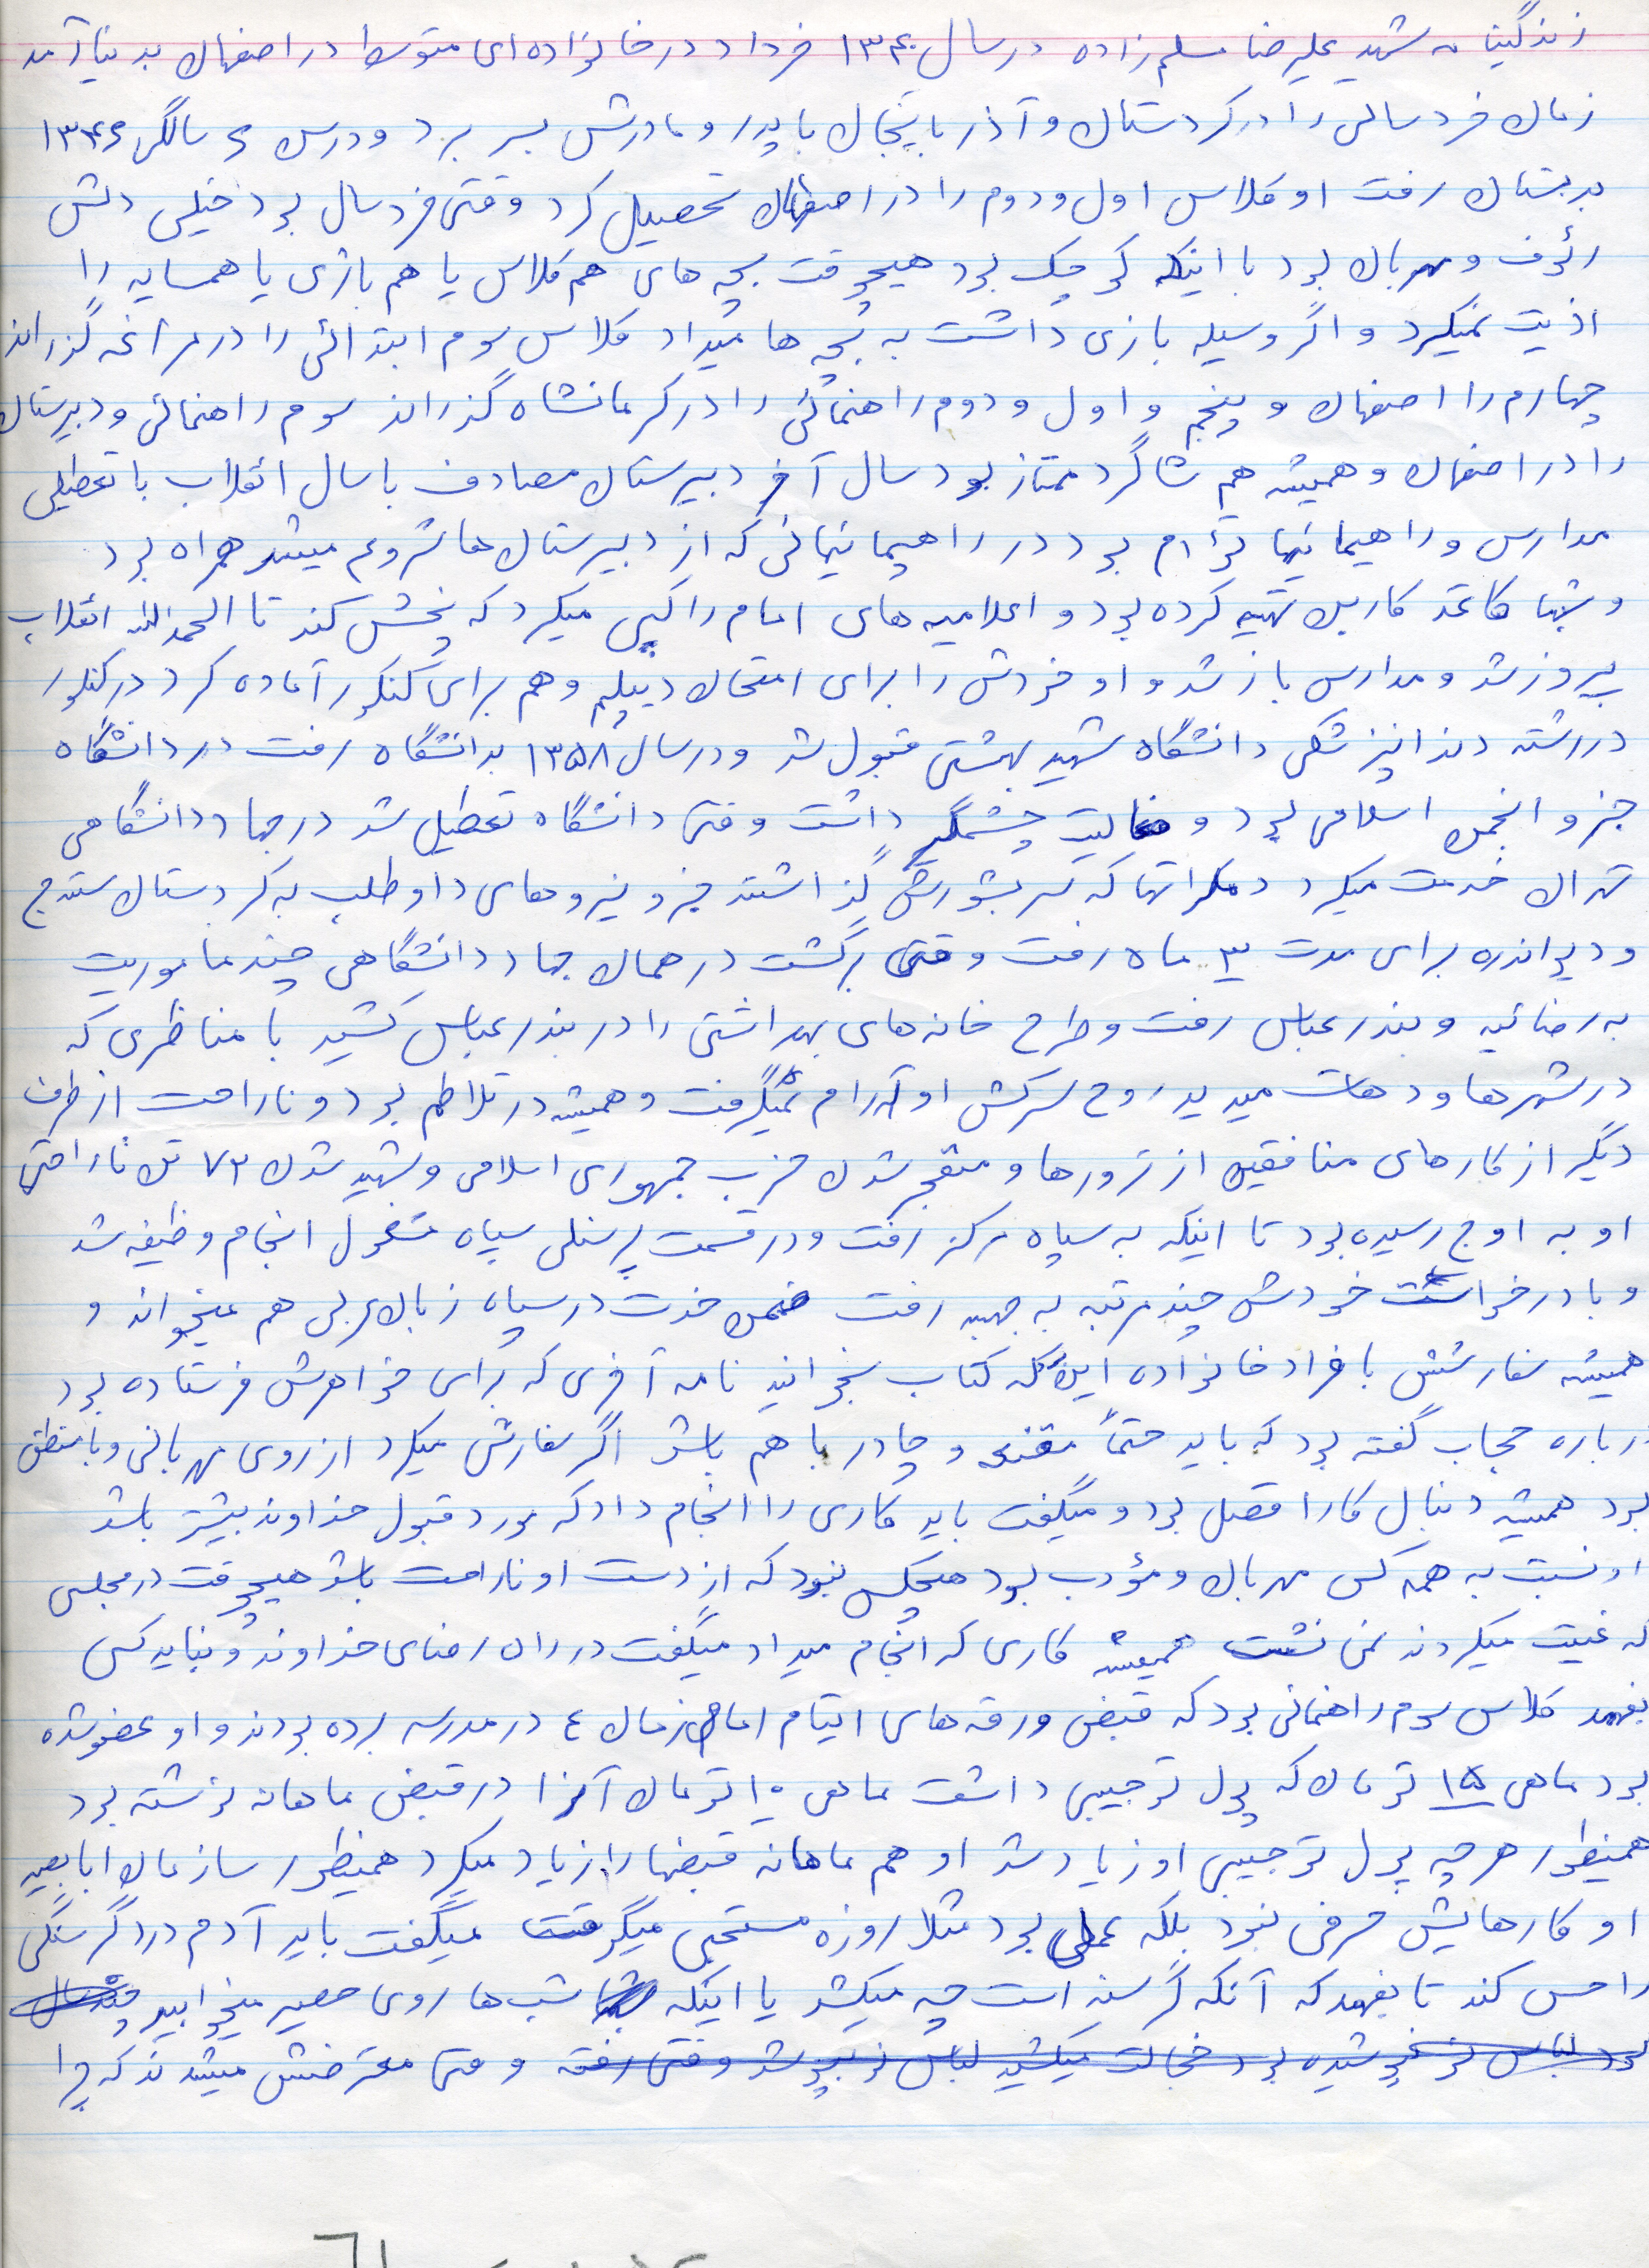 زندگینامه شهید علیرضا مسلم زاده در سال ۱۳۴۰ خرداد در خانواده ای متوسط در اصفهان بدنیا آمد
زمان خردسالی را در کردستان و آذربایجان با پدر و مادرش بسر برد و در سن ۶ سالگی ۱۳۴۶
بدبستان رفت او کلاس اول و دوم را در اصفهان تحصیل کرد وقتی خردسال بود خیلی دلش
رئوف و مهربان بود با اینکه کوچک بود هیچوقت بچه های هم کلاس یا هم بازی یا همسایه را
اذیت نمیکرد و اگر وسیله بازی داشت به بچه ها میداد کلاس سوم ابتدائی را در مراغه گذراند
چهارم را اصفهان و پنجم و اول و دوم راهنمائی را در کرمانشاه گذراند سوم راهنمائی و دبیرستان
را در اصفهان و همیشه هم شاگرد ممتاز بود سال آخر دبیرستان مصادف با سال انقلاب با تعطیلی
مدارس و راهپیمائیها توأم بود در راهپیمائیهائی که از دبیرستان ها شروع میشد همراه بود
و شبها کاغذ کاربن تهیه کرده بود و اعلامیه های امام را کپی میکرد که پخش کند تا الحمدالله انقلاب
پیروز شد و مدارس باز شد و او خودش را برای امتحان دیپلم و هم برای کنکور آماده کرد در کنکور
در رشته دندانپزشکی دانشگاه شهید بهشتی قبول شد و در سال ۱۳۵۸ بدانشگاه رفت در دانشگاه
جزو انجمن اسلامی بود و فعالیت چشمگیر داشت وقتی دانشگاه تعطیل شد در جهاد دانشگاهی
تهران خدمت میکرد دمکراتها که سر بشورش گذاشتند جزو نیروهای داوطلب به کردستان سنندج
و دیواندره برای مدت ۳ ماه رفت وقتی برگشت در همان جهاد دانشگاهی چند ماموریت
به رضائیه و بندرعباس رفت و طرح خانه های بهداشتی را در بندرعباس کشید با مناظری که
در شهرها و دهات میدید روح سرکش او آرام نمیگرفت و همیشه در تلاطم بود و ناراحت از طرف
دیگر از کارهای منافقین از ترورها و منفجر شدن حزب جمهوری اسلامی و شهید شدن ۷۲ تن ناراحتی
او به اوج رسیده بود تا اینکه به سپاه مرکز رفت و در قسمت پرسنلی سپاه مشغول انجام وظیفه شد
و با درخواست خودش چند مرتبه به جبهه رفت ضمن خدمت در سپاه زبان عربی هم میخواند و
همیشه سفارشش با فراد خانواده این که کتاب بخوانید نامه آخری که برای خواهرش فرستاده بود
درباره حجاب گفته بود که باید حتماً مقنعه و چادر با هم باشد اگر سفارش میکرد از روی مهربانی و با منطق
بود همیشه دنبال کار اصل بود و میگفت باید کاری را انجام داد که مورد قبول خداوند بیشتر باشد
او نسبت به همه کس مهربان و مؤدب بود هیچکس نبود که از دست او ناراحت باشد هیچوقت در مجلسی
که غیبت میکردند نمی نشست همیشه کاری که انجام میداد میگفت در راه رضای خداوند و نباید کسی
بفهمد کلاس سوم راهنمائی بود که قبض ورقه های ایتام امام زمان ع در مدرسه برده بودند و او عضو شده
بود ماهی ۱۵ تومان که پول توجیبی داشت ماهی ۱۰ تومان آنرا در قبض ماهانه نوشته بود
همینطور هرچه پول توجیبی او زیاد شد او هم ماهانه قبضها را زیاد میکرد همینطور سازمان
او کارهایش حرفی نبود بلکه عملی بود مثلا روزه مستحبی میگرفت میگفت باید آدم درد گرسنگی
را حس کند تا بفهمد که آنکه گرسنه است چه میکشد یا اینکه شب ها روی حصیر میخوابید
بود لباس نو نمی پوشیده بود خجالت میکشید لباس نو بپوشد وقتی رفته وقتی معترضش میشدند که چرا